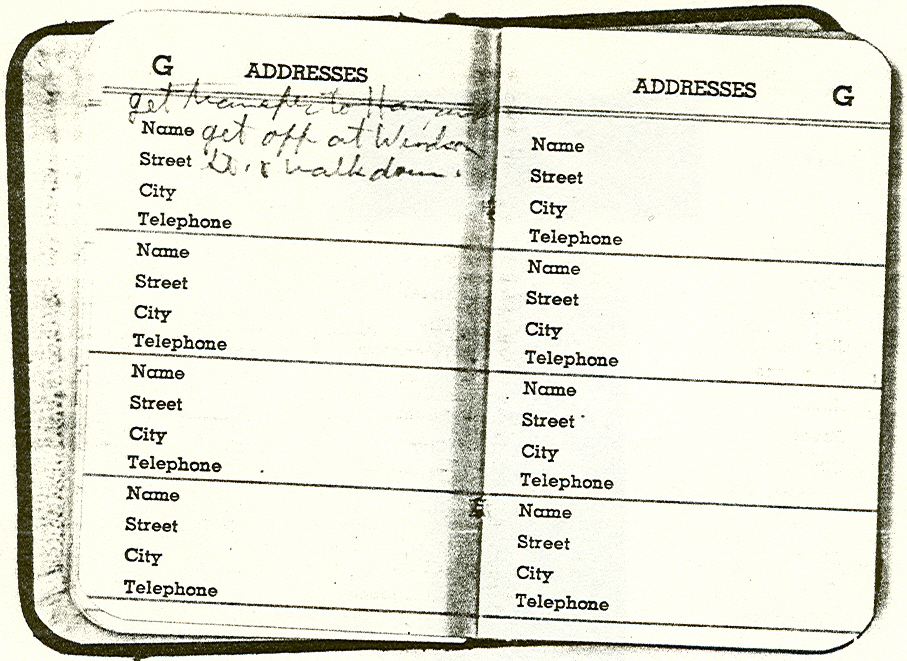 G ADDRESSES
get transfer to Harvard
Name get off at Windsor
Street St. & walk down.
City
Telephone
Name
Street
City
Telephone
Name
Street
City
Telephone
Name
Street
City
Telephone
ADDRESSES G
Name
Street
City
Telephone
Name
Street
City
Telephone
Name
Street
City
Telephone
Name
Street
City
Telephone